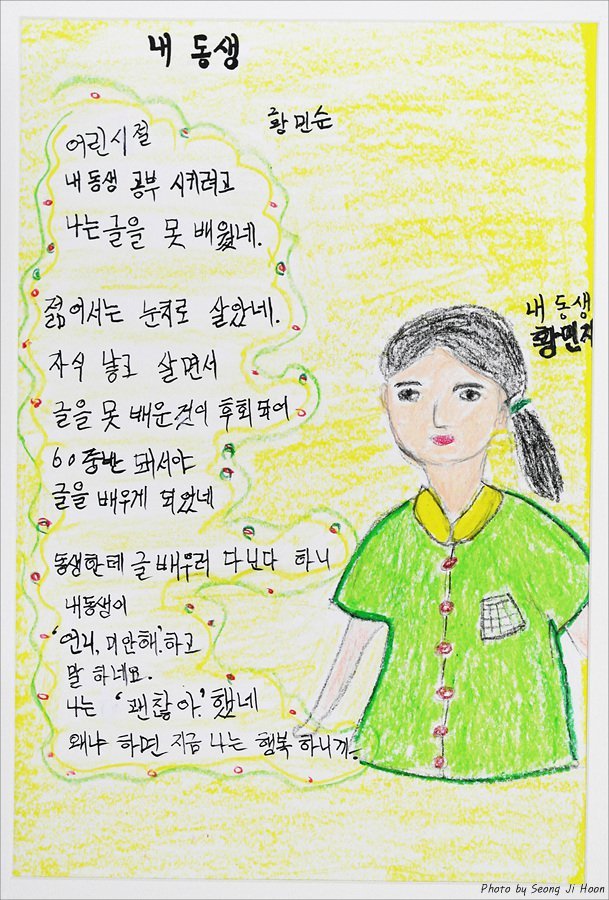 내 동생
황민순
어린시절
내 동생 공부 시키려고
나는 글을 못 배웠네.
젊어서는 눈치로 살았네.
자식 낳고 살면서
글을 못 배운것이 후회되어
60 중반 돼서야
글을 배우게 되었네
동생한데 글 배우러 다닌다 하니
내동생이
'언니, 미안해.'하고
말 하네요.
나는 '괜찮아.' 했네
왜냐 하면 지금 나는 행복 하니까.
내 동생
Photo by Seong Ji Hoon